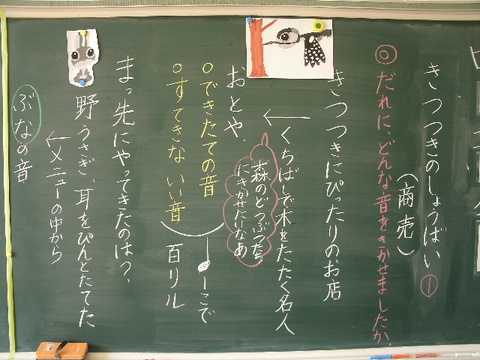 きつつきのしょうばい ①
(商売)
◎だれに、どんな音をきかせましたか。
きつつきにぴったりのお店
くちばしで木をたたく名人
森のどうぶつたちにきかせたいなあ
おとや
○できたての音
○すてきな いい音
♩一こで百リル
まっ先にやってきたのは?、
野うさぎ、耳をぴんとたてた
←メニューの中から
ぶなの音